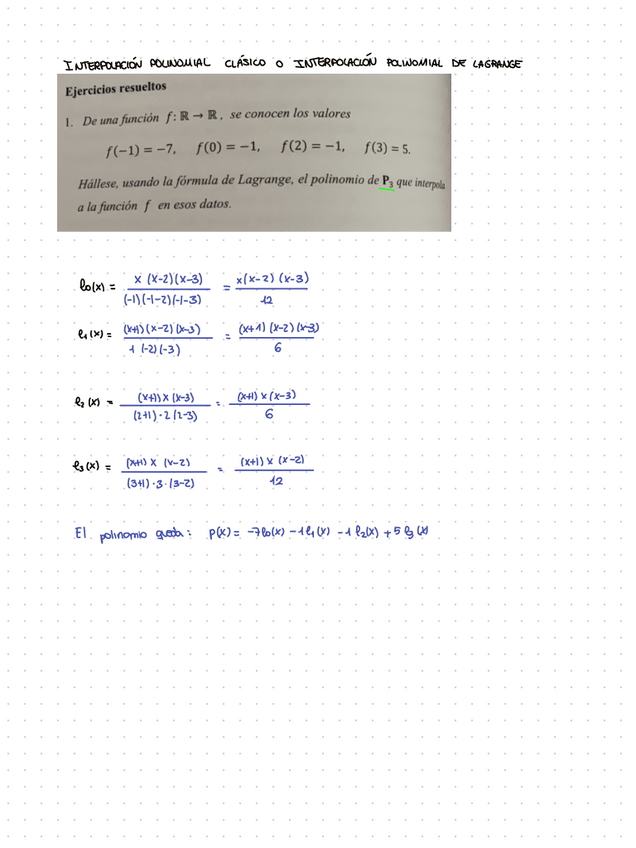 INTERPOLACIÓN POLINOMIAL CLÁSICO O INTERPOLACIÓN POLINOMIAL DE LAGRANGE
Ejercicios resueltos
1. De una función f: ℝ → ℝ, se conocen los valores
f(−1) = −7, f(0) = −1, f(2) = −1, f(3) = 5.
Hállese, usando la fórmula de Lagrange, el polinomio de P₃ que interpola
a la función f en esos datos.
ℓ₀(x) = x (x-2)(x-3) / (-1)(-1-2)(-1-3) = x(x-2) (x-3) / 12
ℓ₁(x) = (x+1)(x-2)(x-3) / 1 (-2)(-3) = (x+1) (x-2)(x-3) / 6
ℓ₂(x) = (x+1) x (x-3) / (2+1)·2(2-3) = (x+1) x (x-3) / 6
ℓ₃(x) = (x+1) x (x-2) / (3+1)·3·(3-2) = (x+1) x (x-2) / 12
El polinomio queda: p(x) = -7ℓ₀(x) -1ℓ₁(x) -1 ℓ₂(x) + 5 ℓ₃(x)